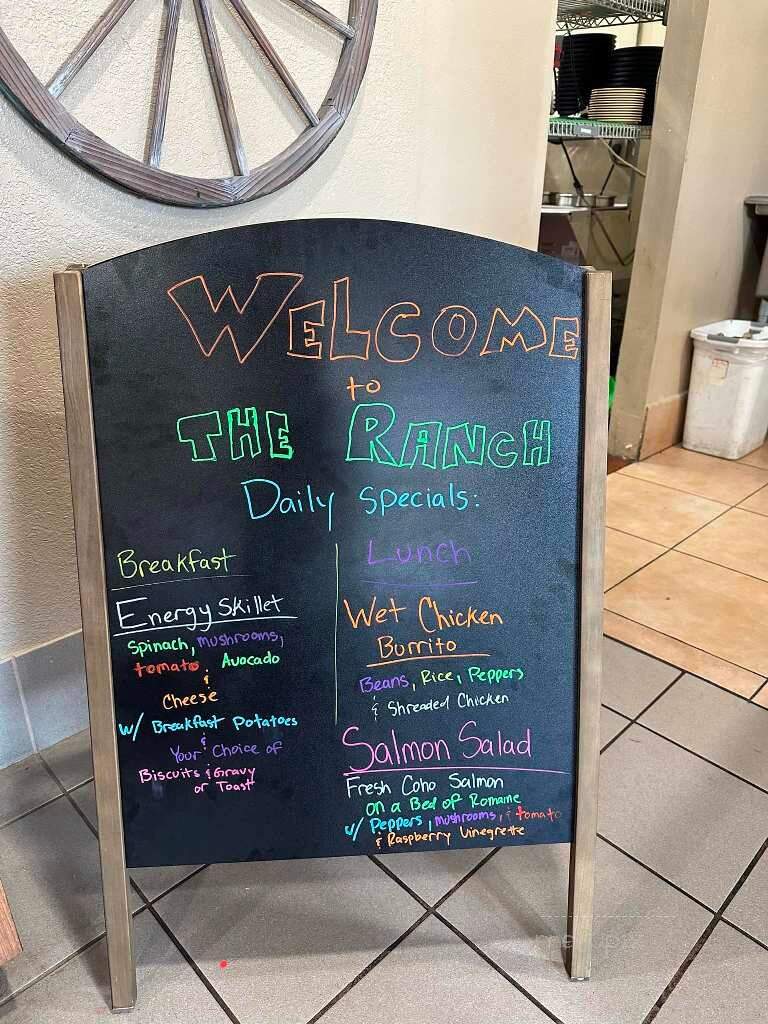 WELCOME
to
THE RANCH
Daily Specials:
Breakfast
Energy Skillet
Spinach, mushrooms,
tomato, Avocado
&
Cheese
w/ Breakfast Potatoes
&
Your Choice of
Biscuits & Gravy
or Toast
Lunch
Wet Chicken
Burrito
Beans, Rice, Peppers
& Shreaded Chicken
Salmon Salad
Fresh Coho Salmon
on a Bed of Romane
w/ Peppers, mushrooms, & tomato
& Raspberry Vinegrette